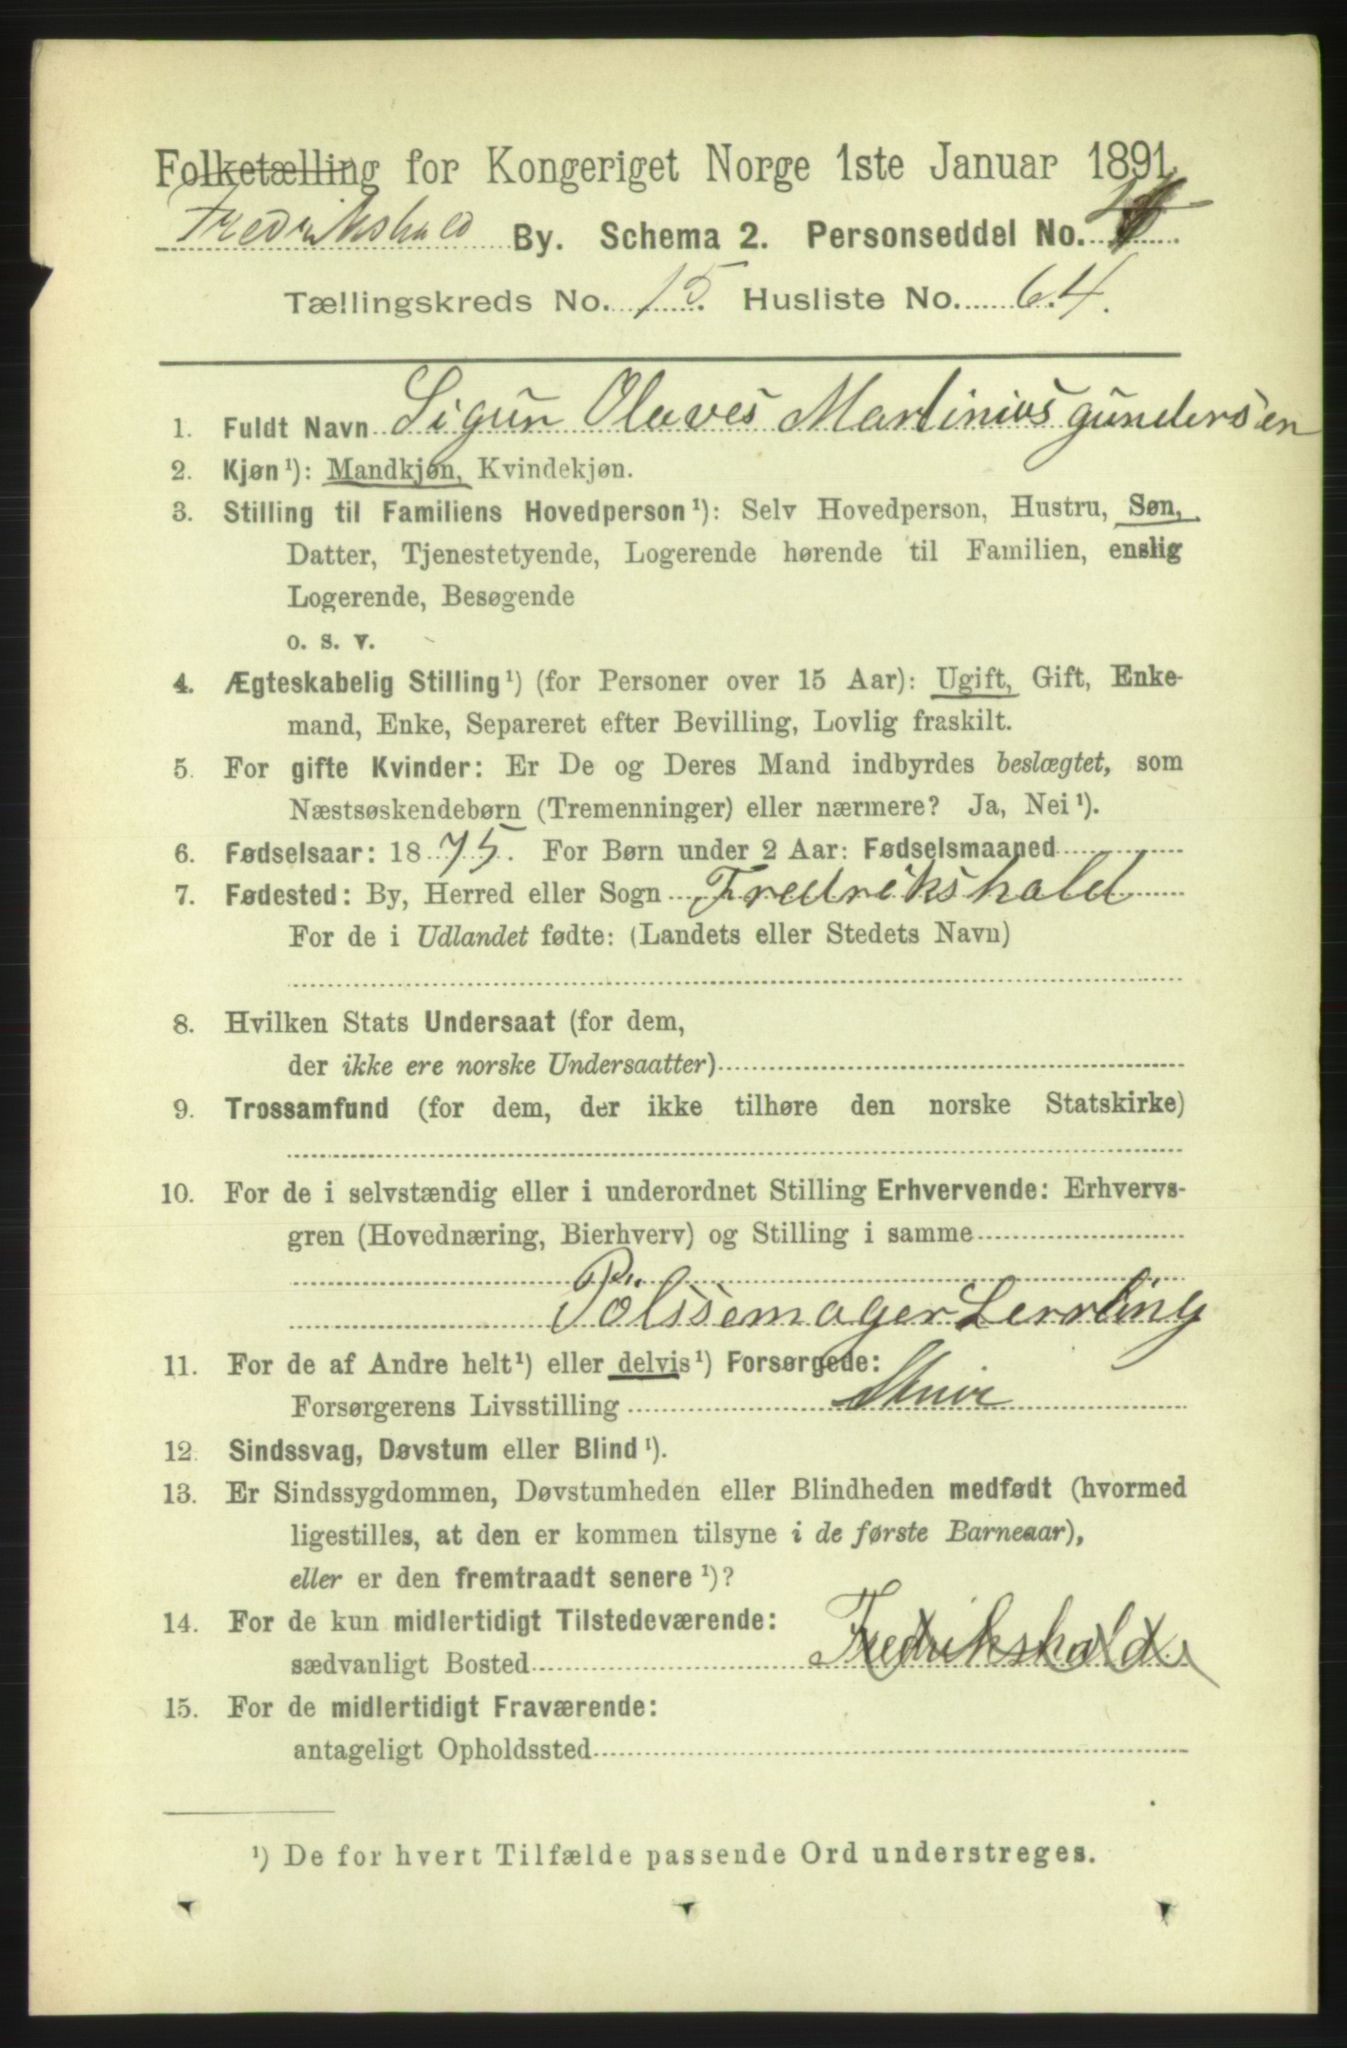 Folketælling for Kongeriget Norge 1ste Januar 1891.
Fredrikshald By. Schema 2. Personseddel No.
Tællingskreds No. 15. Husliste No. 64.
1. Fuldt Navn Sigur Olaves Martinius gundersen
2. Kjøn¹): Mandkjøn, Kvindekjøn.
3. Stilling til Familiens Hovedperson¹): Selv Hovedperson, Hustru, Søn,
Datter, Tjenestetyende, Logerende hørende til Familien, enslig
Logerende, Besøgende
o. s. v.
4. Ægteskabelig Stilling¹) (for Personer over 15 Aar): Ugift, Gift, Enke-
mand, Enke, Separeret efter Bevilling, Lovlig fraskilt.
5. For gifte Kvinder: Er De og Deres Mand indbyrdes beslægtet, som
Næstsøskendebørn (Tremenninger) eller nærmere? Ja, Nei¹).
6. Fødselsaar: 1875. For Børn under 2 Aar: Fødselsmaaned
7. Fødested: By, Herred eller Sogn Fredrikshald
For de i Udlandet fødte: (Landets eller Stedets Navn)
8. Hvilken Stats Undersaat (for dem,
der ikke ere norske Undersaatter)
9. Trossamfund (for dem, der ikke tilhøre den norske Statskirke)
10. For de i selvstændig eller i underordnet Stilling Erhvervende: Erhvervs-
gren (Hovednæring, Bierhverv) og Stilling i samme
Pölssemager Lerrling
11. For de af Andre helt¹) eller delvis¹) Forsørgede:
Forsørgerens Livsstilling
12. Sindssvag, Døvstum eller Blind¹).
13. Er Sindssygdommen, Døvstumheden eller Blindheden medfødt (hvormed
ligestilles, at den er kommen tilsyne i de første Barneaar),
eller er den fremtraadt senere¹)?
14. For de kun midlertidigt Tilstedeværende:
sædvanligt Bosted Fredrikshald.
15. For de midlertidigt Fraværende:
antageligt Opholdssted
¹) De for hvert Tilfælde passende Ord understreges.